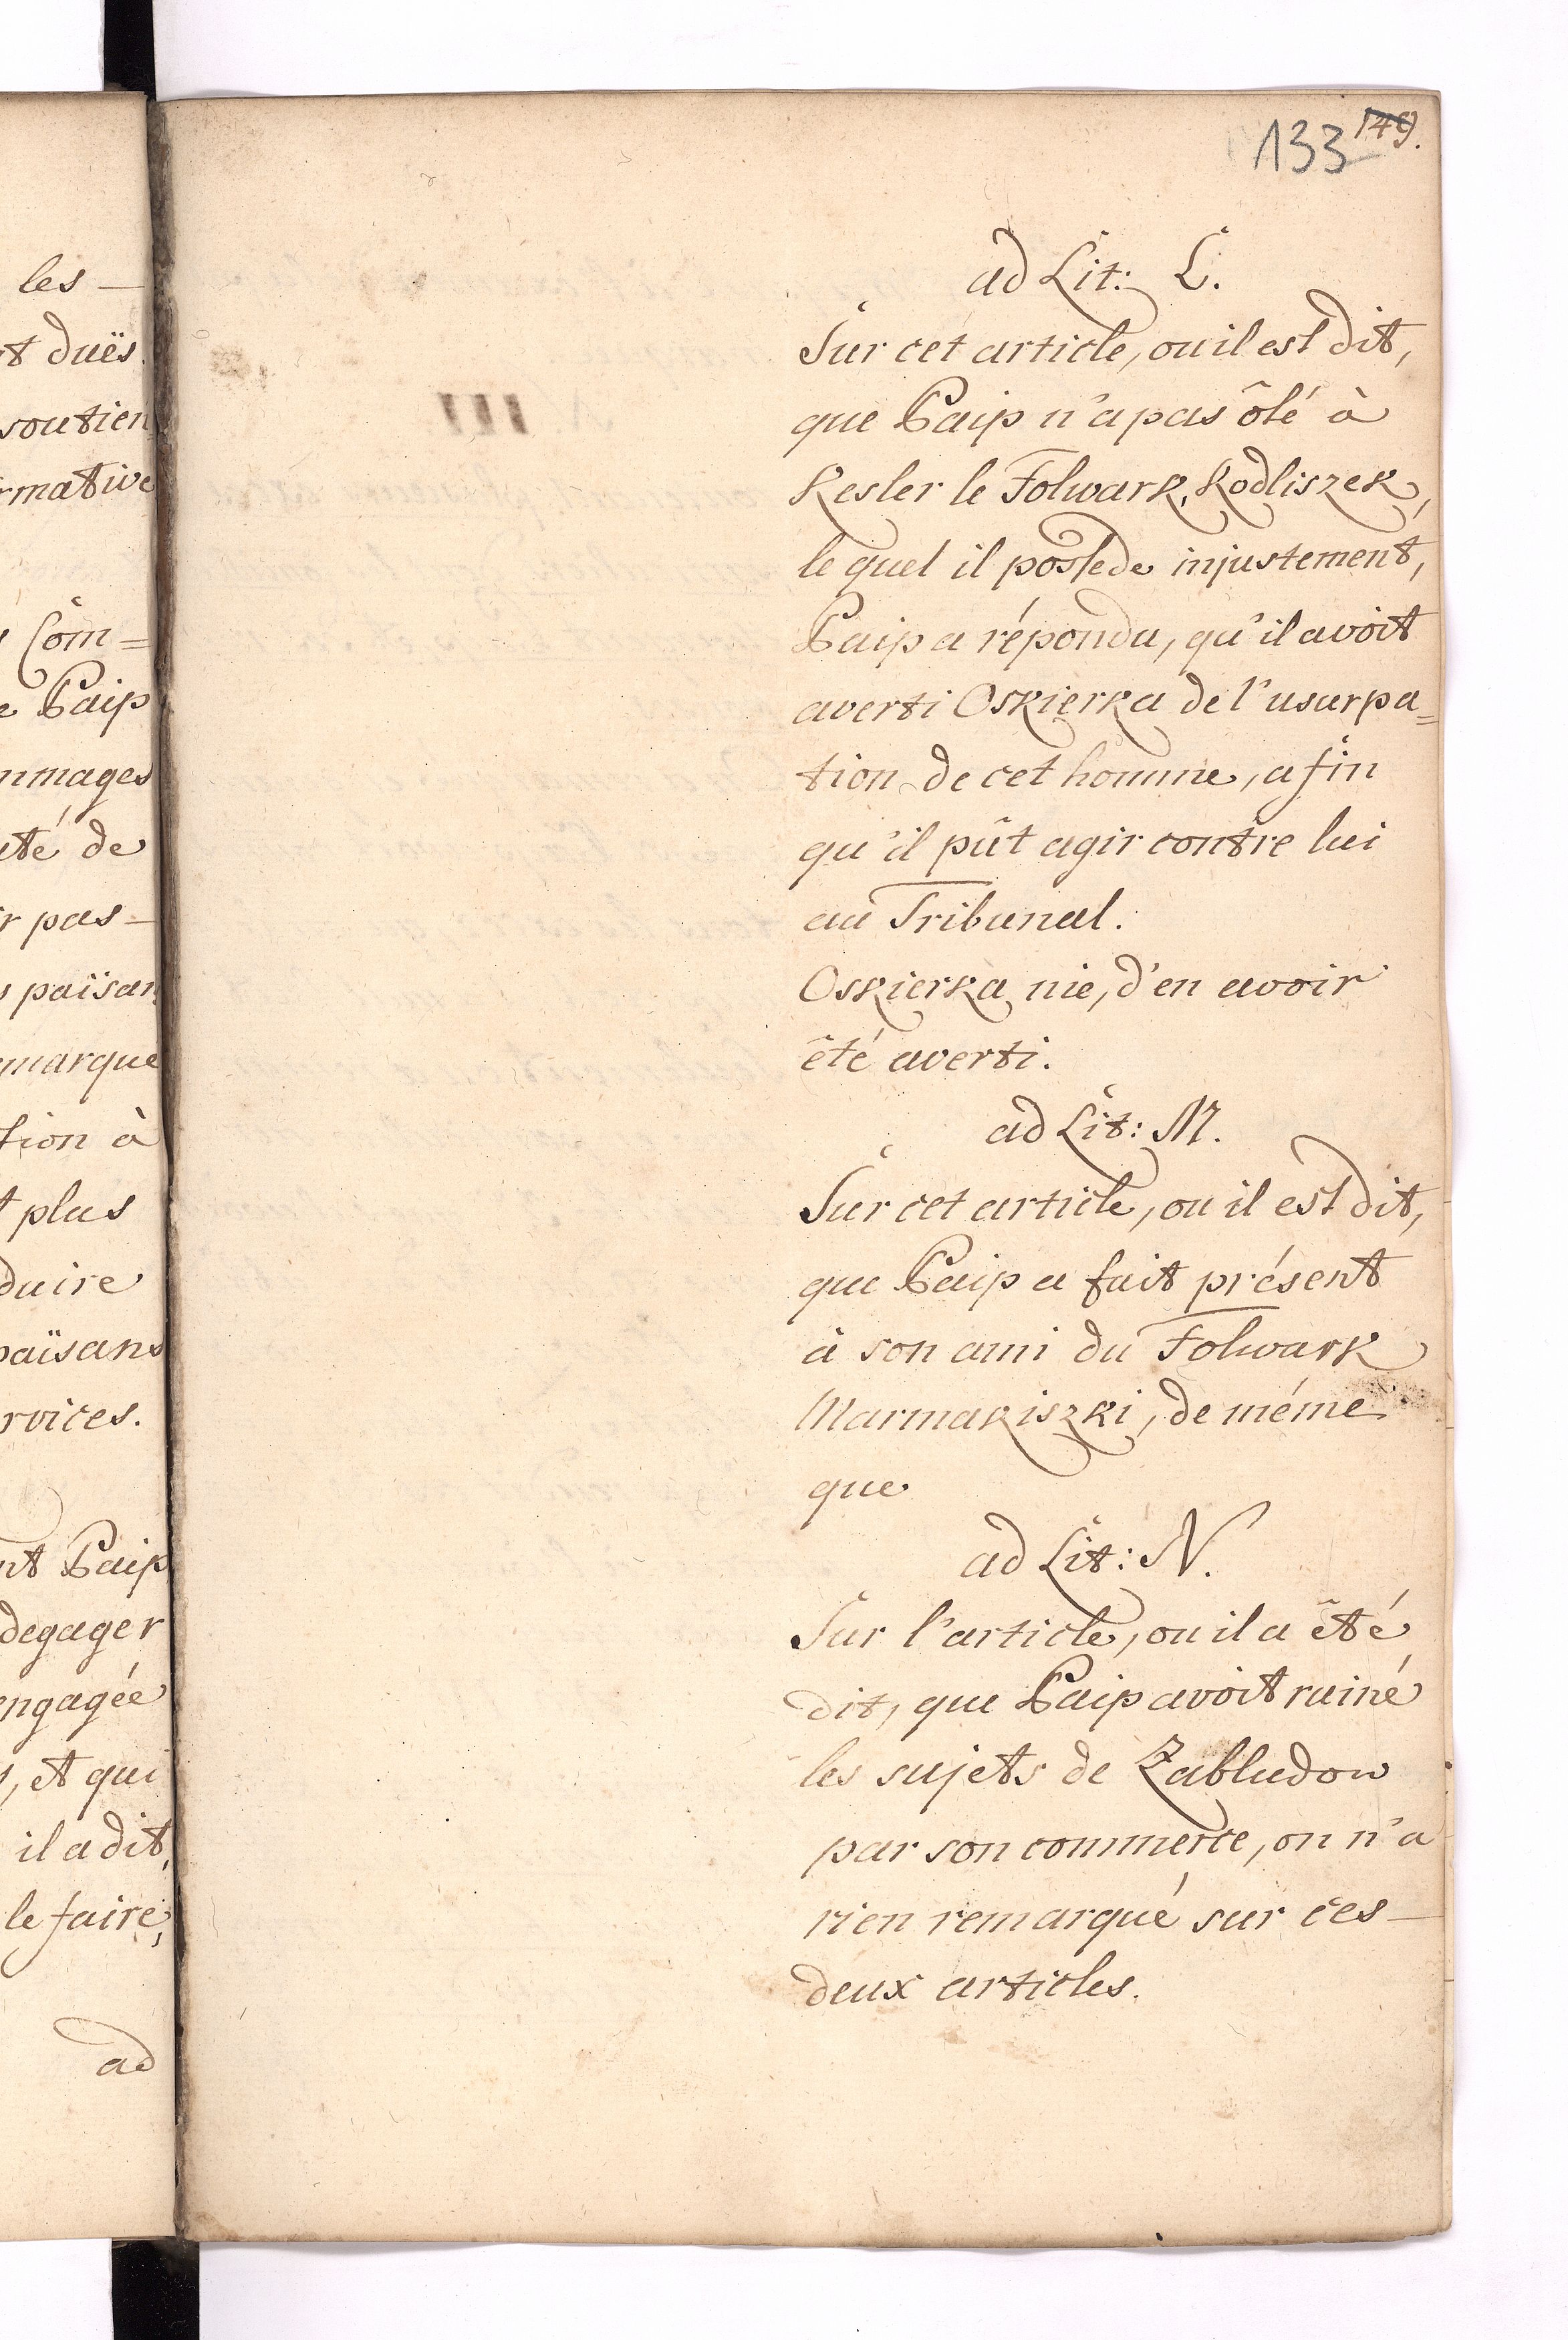 les —
t duës.
soutien
rmative
Com=
e Paip
mmages
uté de
ir pas —
païsan
marque
tion à
t plus
duire
païsans
rvices.
nt Paip
degager
engagée
, et qui
il a dit,
le faire,
ad
133 149.
ad Lit: L.
Sur cet article, ou il est dit,
que Paip n'a pas ôté à
Kesler le Folwark, Kodliszek,
le quel il possede injustement,
Paip a répondu, qu'il avoit
averti Oskierka de l'usurpa=
tion de cet homme, afin
qu'il pût agir contre lui
au Tribunal.
Oskierka nie, d'en avoir
êté averti.
ad Lit: M.
Sur cet article, ou il est dit,
que Paip a fait présent
à son ami du Folwark
Marmakiszki, de méme
que
ad Lit: N.
Sur l'article, ou il a êté
dit, que Paip avoit ruiné
les sujets de Zabludow
par son commerce, on n'a
rien remarqué sur ces —
deux articles.